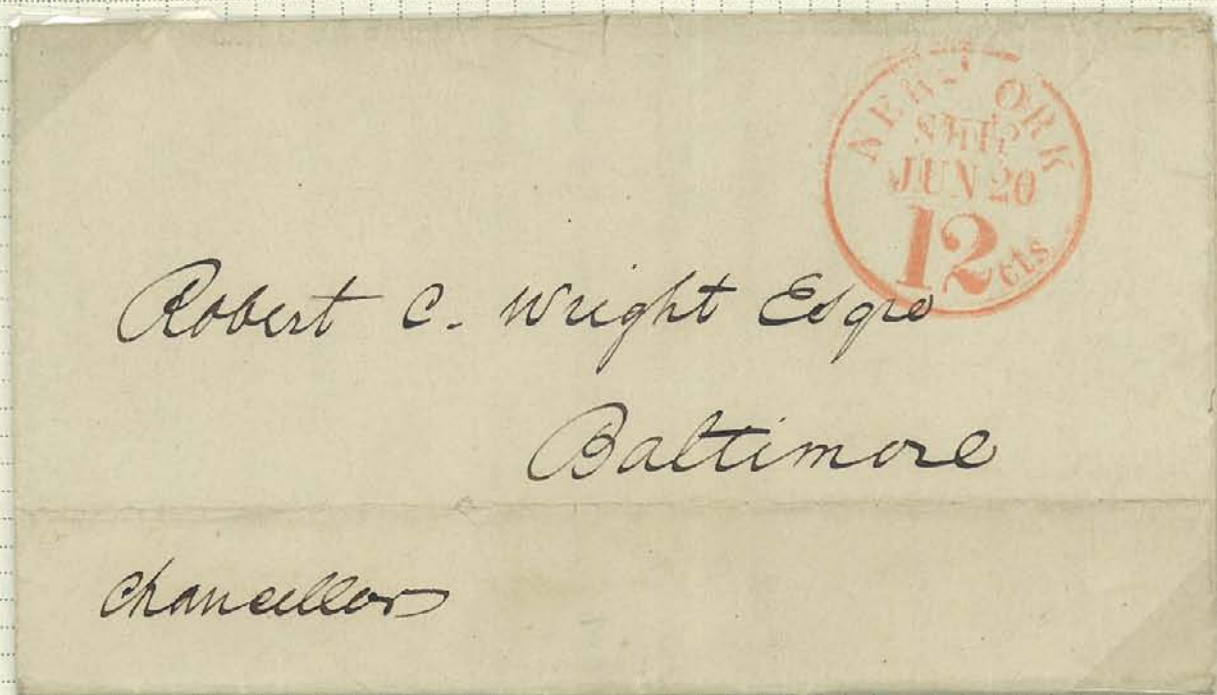 NEW-YORK
SHIP
JUN 20
12 cts
Robert C. Wright Esqre
Baltimore
Chancellor